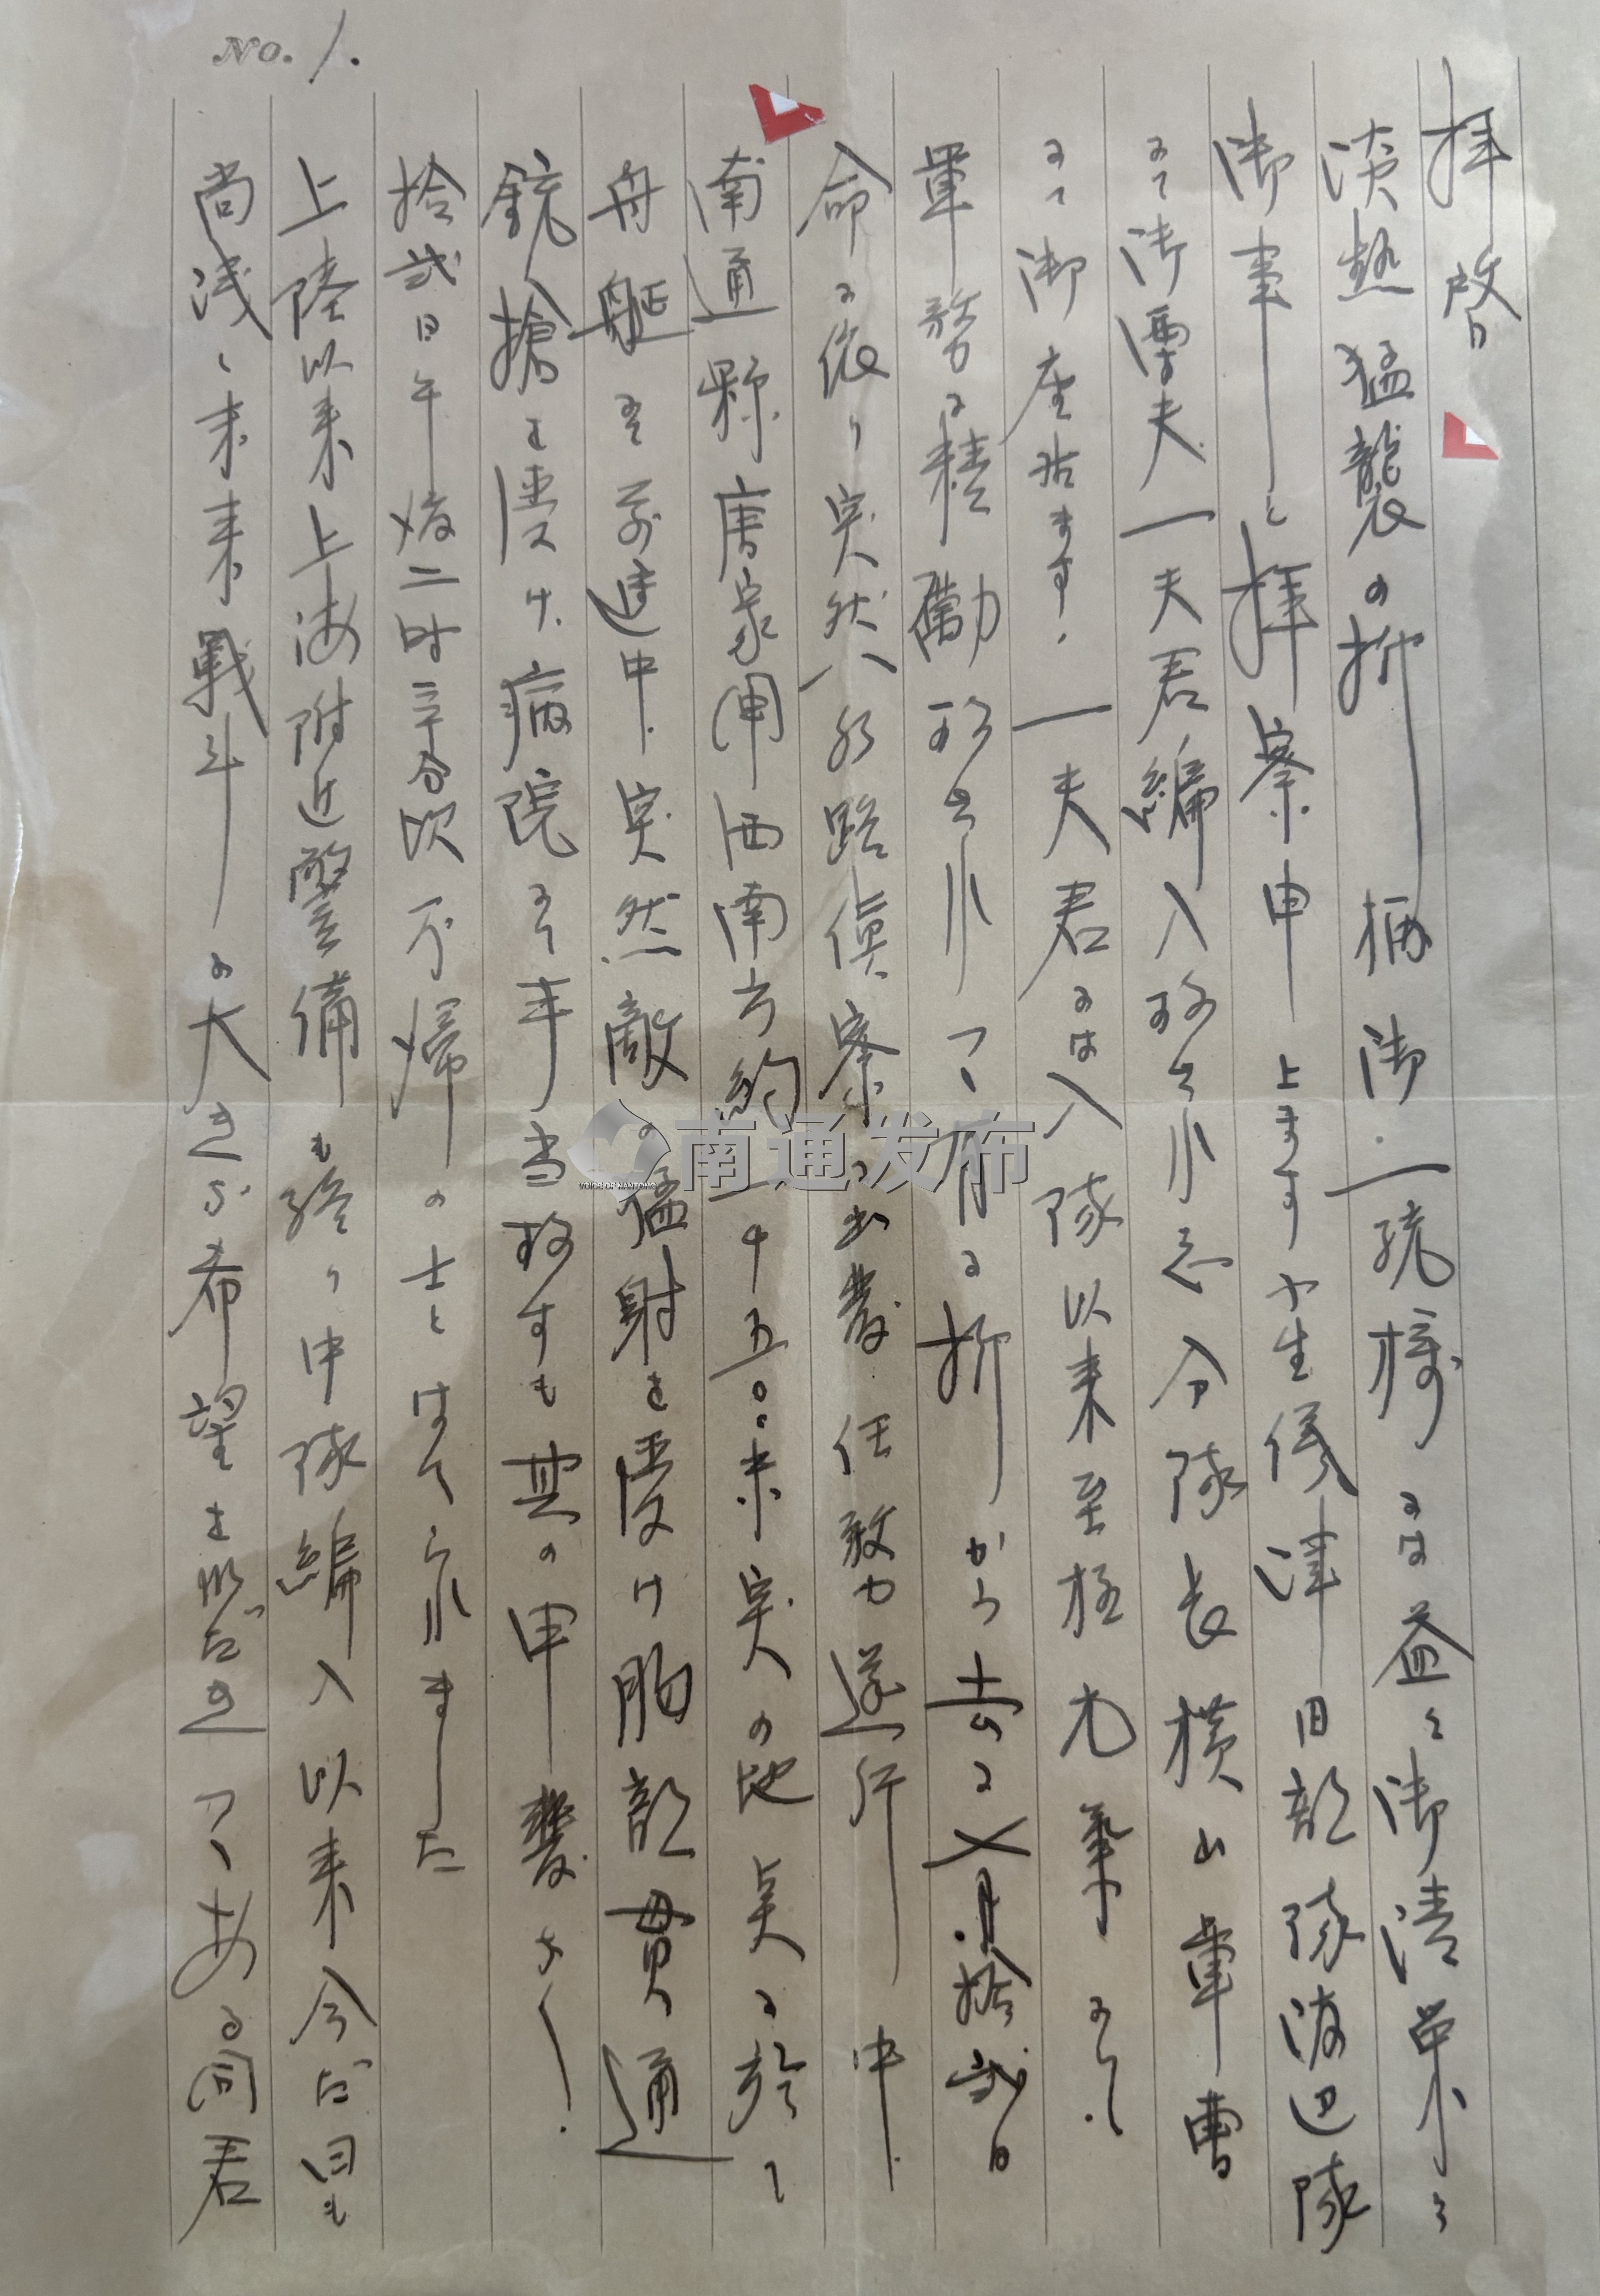 No. 1.
拝啓
淡熱猛襲の折柄御一統様には益々御清栄の
御事と拝察申上ます 小生儀津田部隊渡辺隊
にて御 夫一夫君編入致され 分隊長横山軍曹
にて御座居ます. 一夫君には入隊以来至極元気にて.
軍務に精励致されて有る折から去る 月拾弐日
命に依り突然水路偵察に出発任務遂行中.
南通県唐家閘西南方約一千五〇〇米実の地点に於て
舟艇にて前進中.突然敵の猛射を受け胸部貫通
銃槍を受け、病院にて手当致すも其の甲斐なく.
拾弐日午後二時三十分 不帰の士とはてられました
上陸以来上海附近警備も終り中隊編入以来今だ日も
尚浅く未来戦斗の大きな希望を いてある同君
南通发布
VOICE OF NANTONG